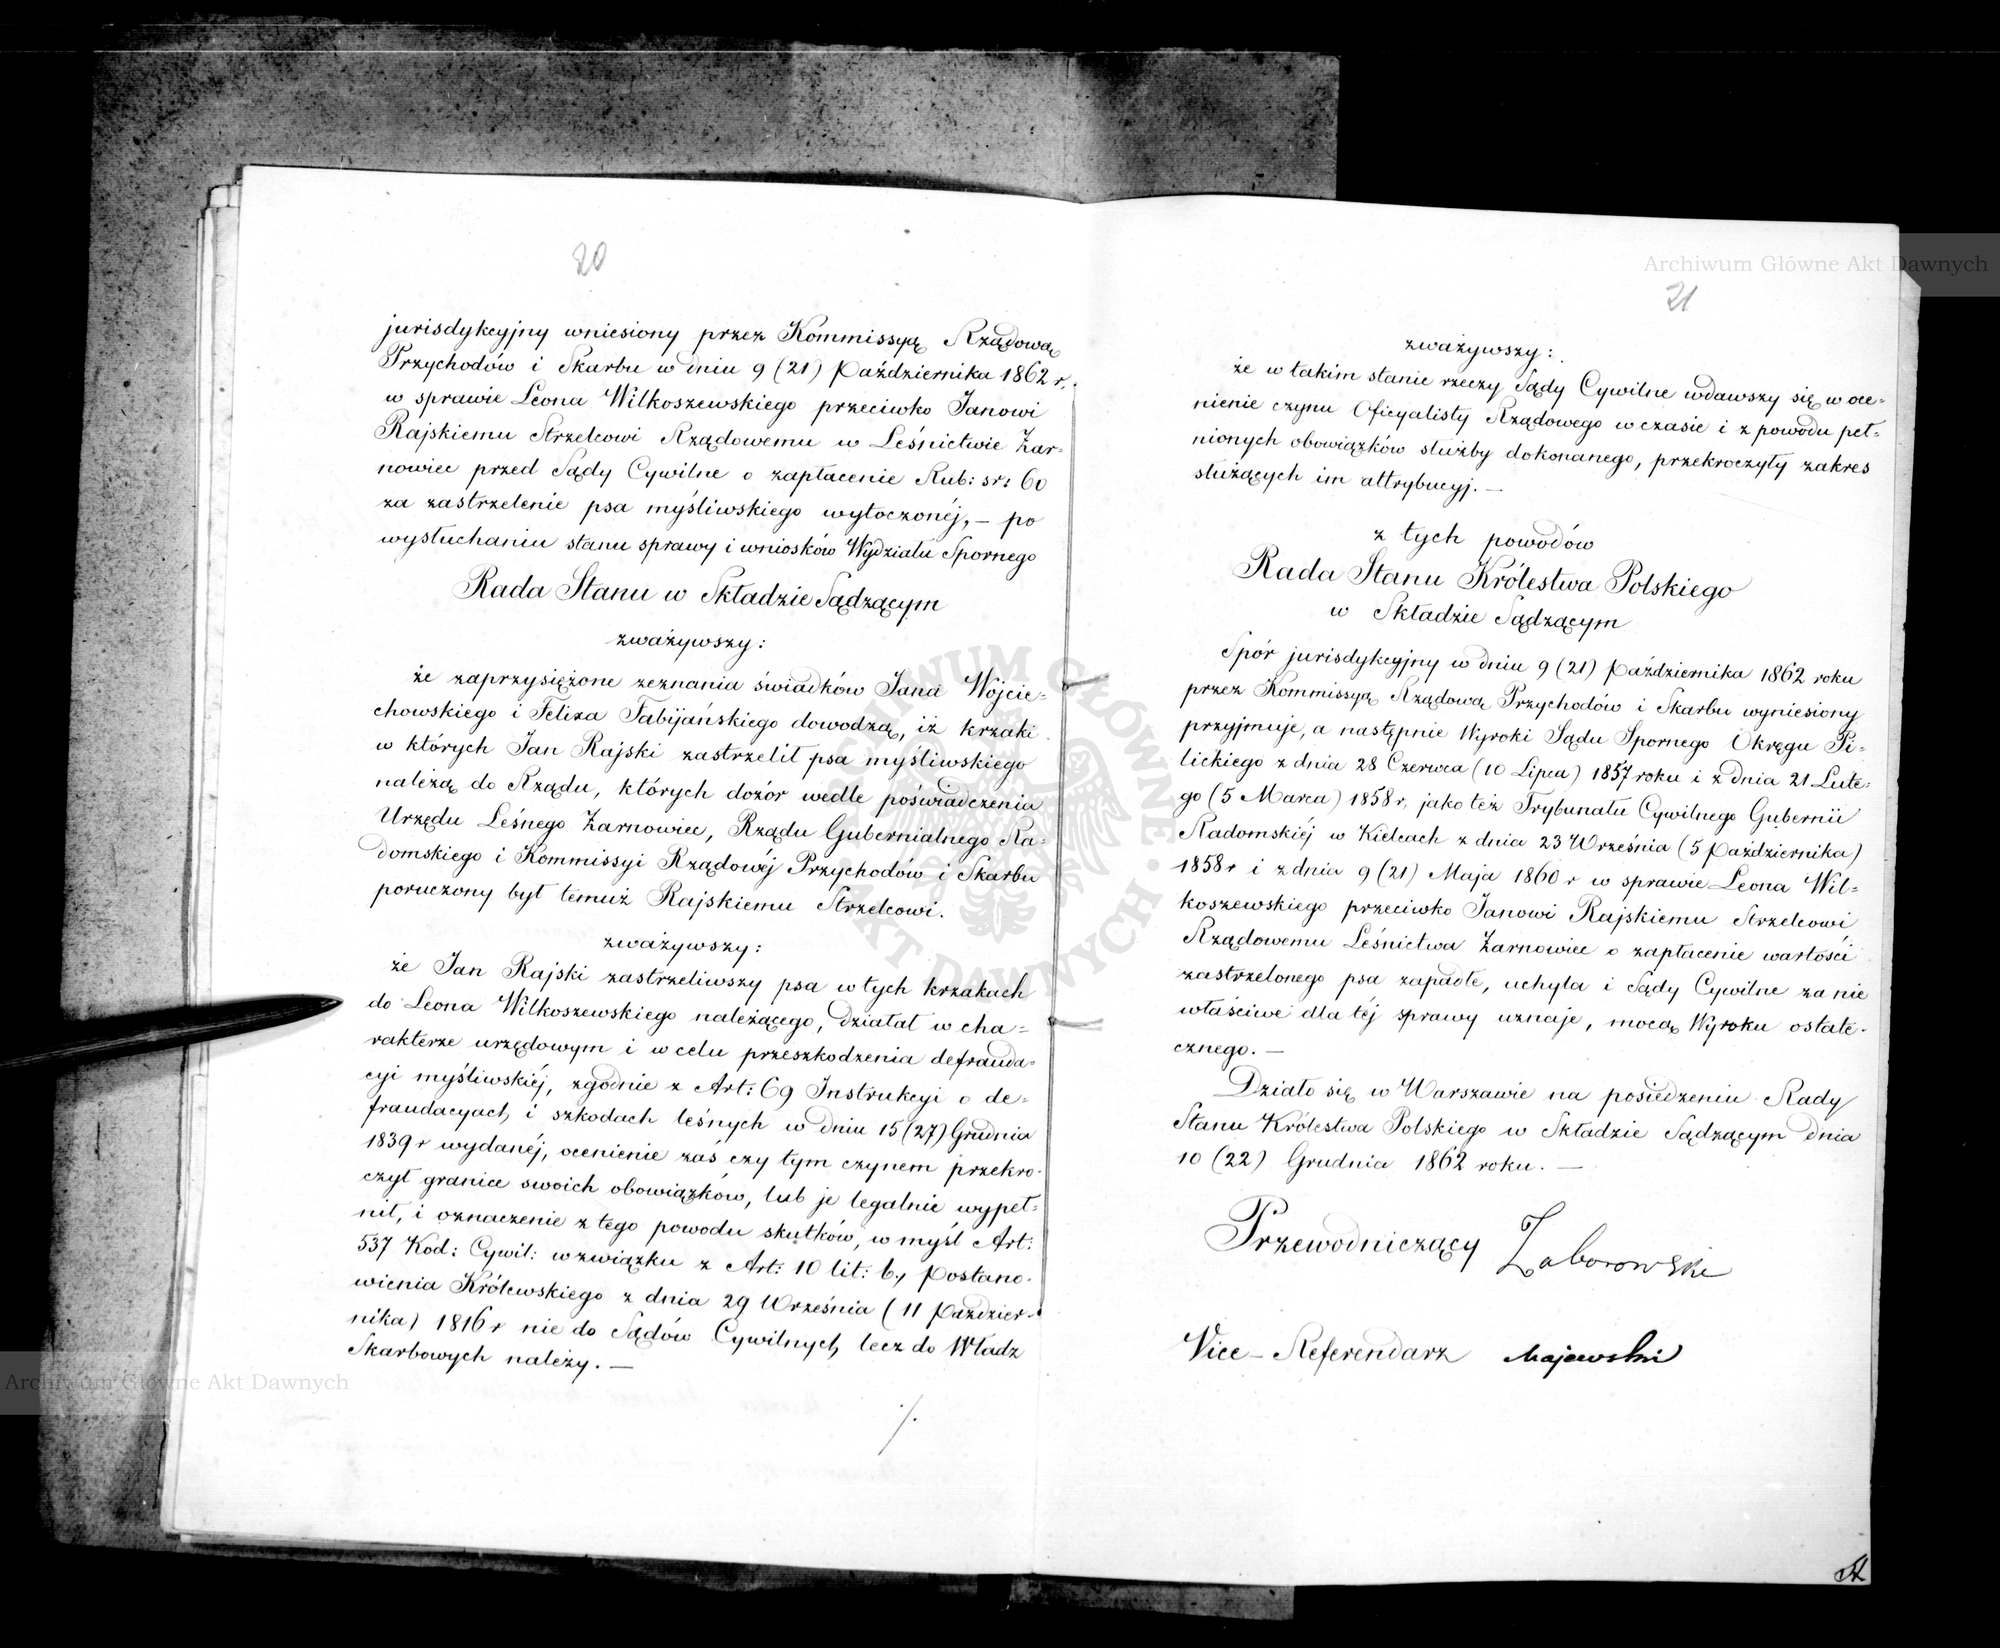 20
jurisdykcyjny wniesiony przez Kommissyą Rządową
Przychodów i Skarbu w dniu 9 (21) Października 1862 r.
w sprawie Leona Wilkoszewskiego przeciwko Janowi
Rajskiemu Strzelcowi Rządowemu w Leśnictwie Żar=
nowiec przed Sądy Cywilne o zapłacenie Rub: sr: 60
za zastrzelenie psa myśliwskiego wytoczonéj, – po
wysłuchaniu stanu sprawy i wniosków Wydziału Spornego
Rada Stanu w Składzie Sądzącym
zważywszy:
że zaprzysiężone zeznania świadków Jana Wojcie=
chowskiego i Felixa Fabijańskiego dowodzą, iż krzaki
w których Jan Rajski zastrzelił psa myśliwskiego
należą do Rządu, których dozór wedle poświadczenia
Urzędu Leśnego Żarnowiec, Rządu Gubernialnego Ra=
domskiego i Kommissyi Rządowéj Przychodów i Skarbu
poruczony był temuż Rajskiemu Strzelcowi.
zważywszy:
że Jan Rajski zastrzeliwszy psa w tych krzakach
do Leona Wilkoszewskiego należącego, działał w cha=
rakterze urzędowym i w celu przeszkodzenia defrauda=
cyi myśliwskiéj, zgodnie z Art: 69 Instrukcyi o de=
fraudacyach i szkodach leśnych w dniu 15 (27) Grudnia
1839 r wydanéj, ocenienie zaś czy tym czynem przekro=
czył granice swoich obowiązków, lub je legalnie wypeł=
nił, i oznaczenie z tego powodu skutków, w myśl Art:
537 Kod: Cywil: w związku z Art: 10 lit: b, Postano=
wienia Królewskiego z dnia 29 Września (11 Paździer=
nika) 1816 r nie do Sądów Cywilnych, lecz do Władz
Skarbowych należy. —
./.
21
zważywszy:
że w takim stanie rzeczy Sądy Cywilne wdawszy się w oce=
nienie czynu Oficyalisty Rządowego w czasie i z powodu peł=
nionych obowiązków służby dokonanego, przekroczyły zakres
służących im attrybucyj. —
z tych powodów
Rada Stanu Królestwa Polskiego
w Składzie Sądzącym
Spór jurisdykcyjny w dniu 9 (21) Października 1862 roku
przez Kommissyą Rządową Przychodów i Skarbu wyniesiony
przyjmuje, a następnie Wyroki Sądu Spornego Okręgu Pi=
lickiego z dnia 28 Czerwca (10 Lipca) 1857 roku i z dnia 21 Lute=
go (5 Marca) 1858 r. jako też Trybunału Cywilnego Gubernii
Radomskiéj w Kielcach z dnia 23 Września (5 Października)
1858 r i z dnia 9 (21) Maja 1860 r w sprawie Leona Wil=
koszewskiego przeciwko Janowi Rajskiemu Strzelcowi
Rządowemu Leśnictwa Żarnowiec o zapłacenie wartości
zastrzelonego psa zapadłe, uchyla i Sądy Cywilne za nie
właściwe dla téj sprawy uznaje, mocą Wyroku ostate=
cznego. —
Działo się w Warszawie na posiedzeniu Rady
Stanu Królestwa Polskiego w Składzie Sądzącym dnia
10 (22) Grudnia 1862 roku. —
Przewodniczący Zaborowski
Vice-Referendarz Majewski
Archiwum Główne Akt Dawnych
Archiwum Główne Akt Dawnych
ARCHIWUM GŁÓWNE AKT DAWNYCH